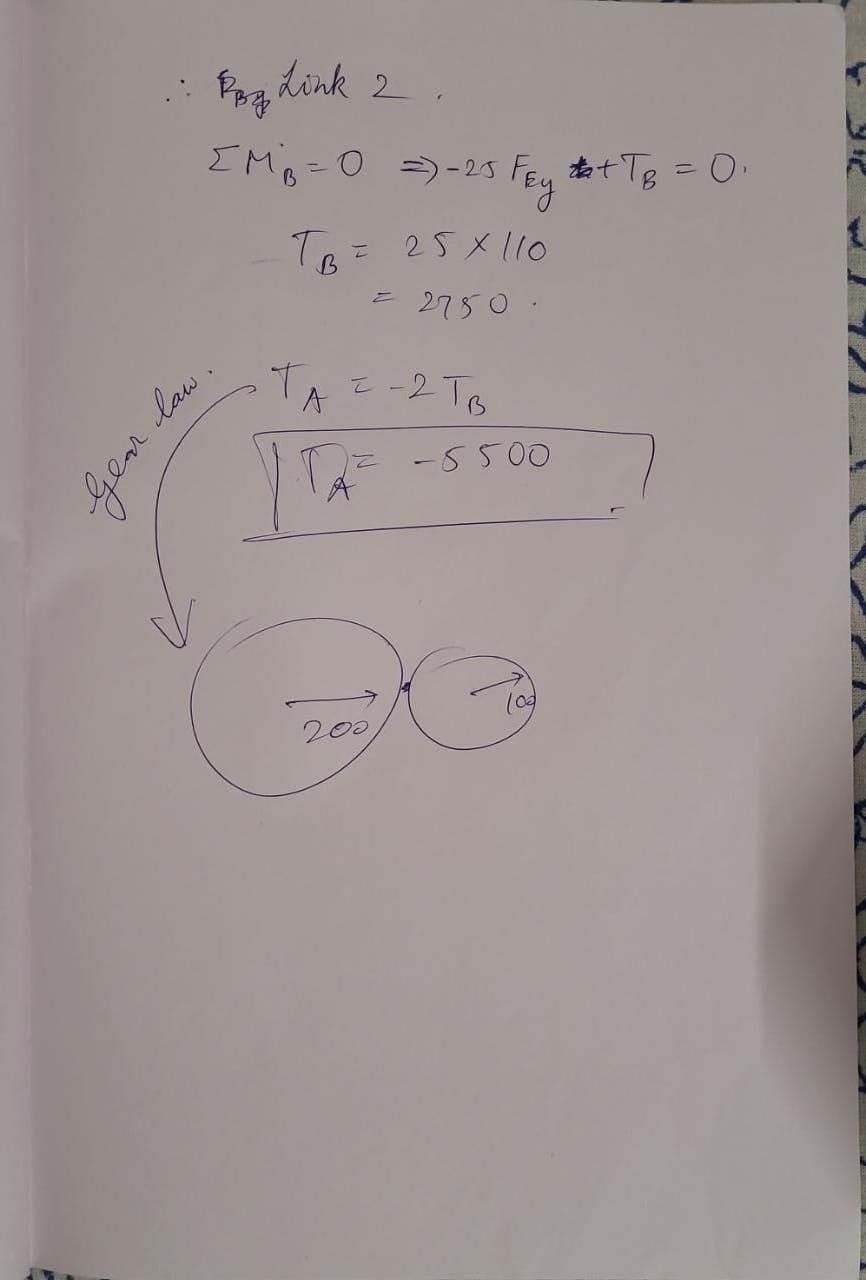 ∴ Link 2.
ΣM_B = 0 ⇒ -25 F_Ey + T_B = 0.
T_B = 25 × 110
= 2750.
Gear law.
T_A = -2 T_B
T_A = -5500
200
100